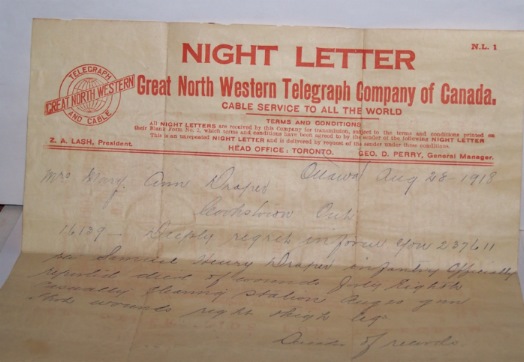 N.L. 1
NIGHT LETTER
TELEGRAPH
GREAT NORTH WESTERN
AND CABLE
Great North Western Telegraph Company of Canada.
CABLE SERVICE TO ALL THE WORLD
TERMS AND CONDITIONS
All NIGHT LETTERS are received by this Company for transmission, subject to the terms and conditions printed on
their Blank Form No. 2, which terms and conditions have been agreed to by the sender of the following NIGHT LETTER
This is an unrepeated NIGHT LETTER and is delivered by request of the sender under these conditions.
Z. A. LASH, President.
HEAD OFFICE: TORONTO.
GEO. D. PERRY, General Manager.
Ottawa Aug 28-1918
Mrs Mary Ann Draper
Cookstown Ont
Deeply regret inform you 237611
pte Samuel Henry Draper infantry officially
reported died of wounds July Eighth
casualty clearing station
wounds right thigh
of records